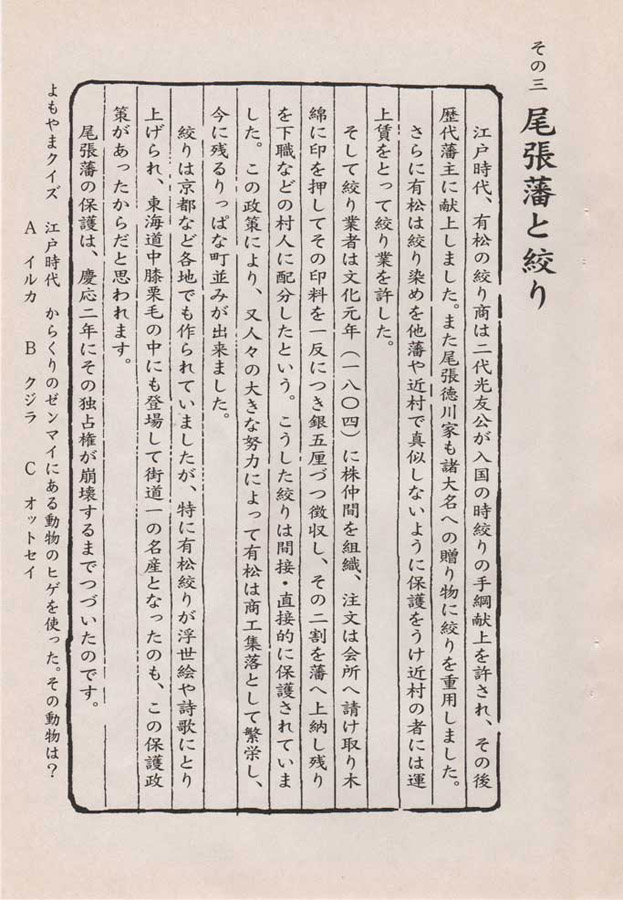 その三 尾張藩と絞り
江戸時代、有松の絞り商は二代光友公が入国の時絞りの手綱献上を許され、その後
歴代藩主に献上しました。また尾張徳川家も諸大名への贈り物に絞りを重用しました。
さらに有松は絞り染めを他藩や近村で真似しないように保護をうけ近村の者には運
上賃をとって絞り業を許した。
そして絞り業者は文化元年(一八〇四)に株仲間を組織、注文は会所へ請け取り木
綿に印を押してその印料を一反につき銀五厘づつ徴収し、その二割を藩へ上納し残り
を下職などの村人に配分したという。こうした絞りは間接・直接的に保護されていま
した。この政策により、又人々の大きな努力によって有松は商工集落として繁栄し、
今に残るりっぱな町並みが出来ました。
絞りは京都など各地でも作られていましたが、特に有松絞りが浮世絵や詩歌にとり
上げられ、東海道中膝栗毛の中にも登場して街道一の名産となったのも、この保護政
策があったからだと思われます。
尾張藩の保護は、慶応二年にその独占権が崩壊するまでつづいたのです。
よもやまクイズ 江戸時代 からくりのゼンマイにある動物のヒゲを使った。その動物は?
A イルカ B クジラ C オットセイ